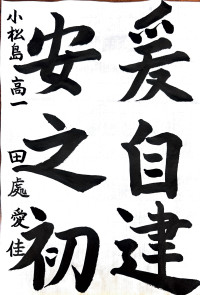 爰自建
安之初
小松島高一 田處愛佳